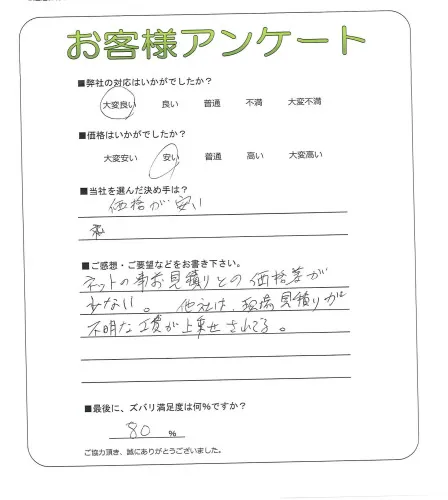 お客様アンケート
■弊社の対応はいかがでしたか?
大変良い 良い 普通 不満 大変不満
■価格はいかがでしたか?
大変安い 安い 普通 高い 大変高い
■当社を選んだ決め手は?
価格が安い
■ご感想・ご要望などをお書き下さい。
ネットの事前お見積りとの価格差が
少ない。他社は、現場見積りが
不明な工費が上乗せされてる。
■最後に、ズバリ満足度は何%ですか?
80 %
ご協力頂き、誠にありがとうございました。